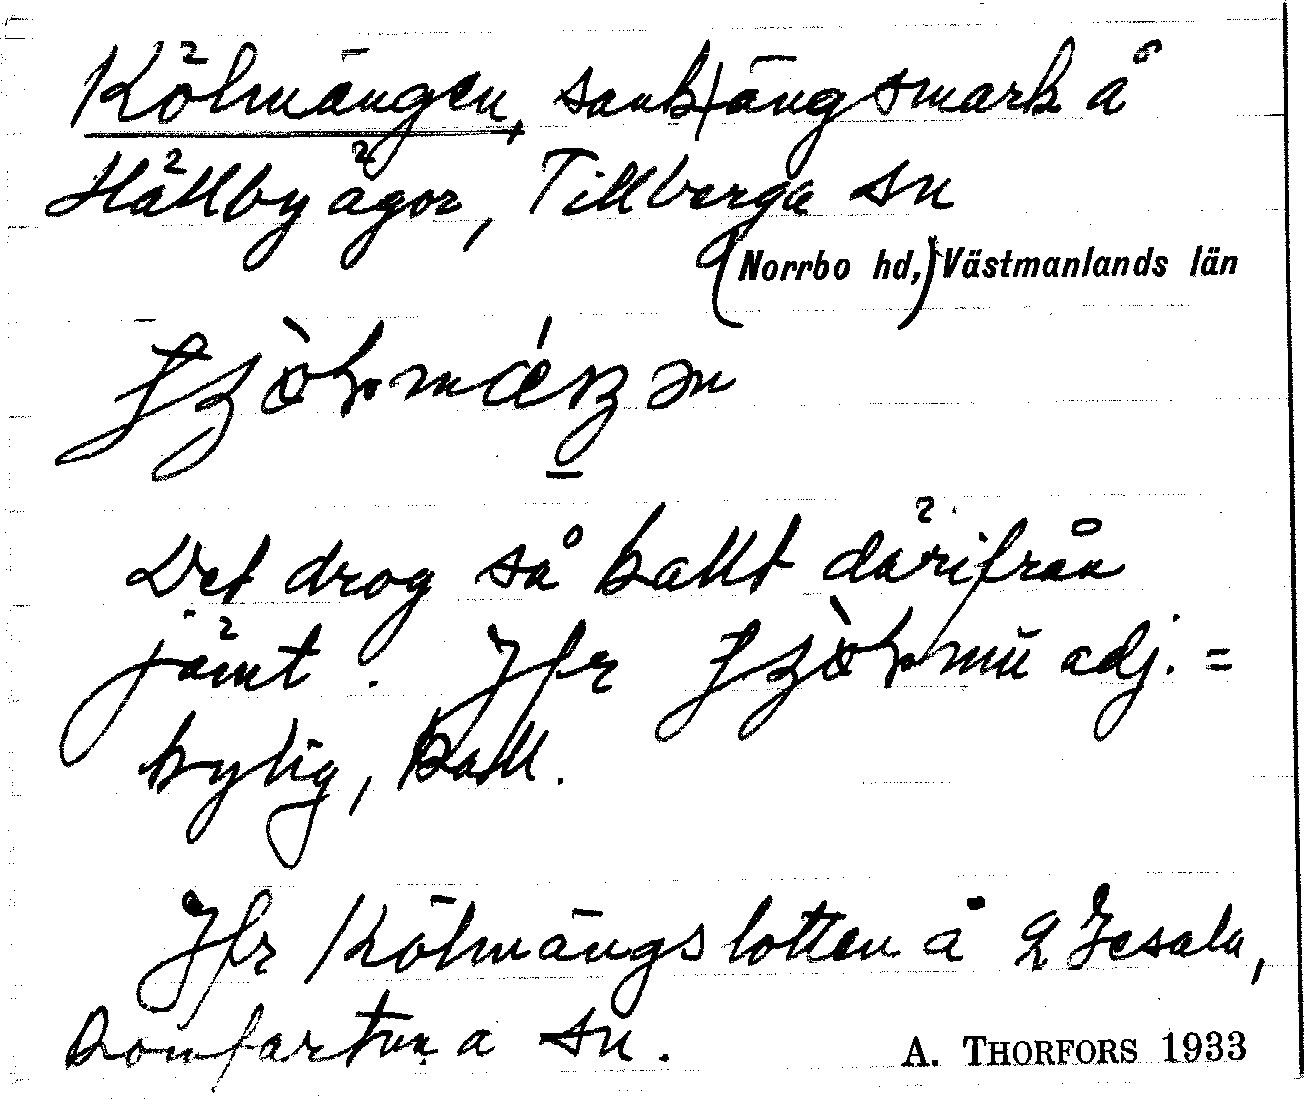 Kölmängen, sank ängsmark å
Hällby ägor, Tillberga sn
(Norrbo hd,) Västmanlands län
Det drog så kallt därifrån
jämt. Jfr adj. =
kylig, kall.
Jfr Kölmängslotten å Jesala,
Romfartuna sn.
A. THORFORS 1933